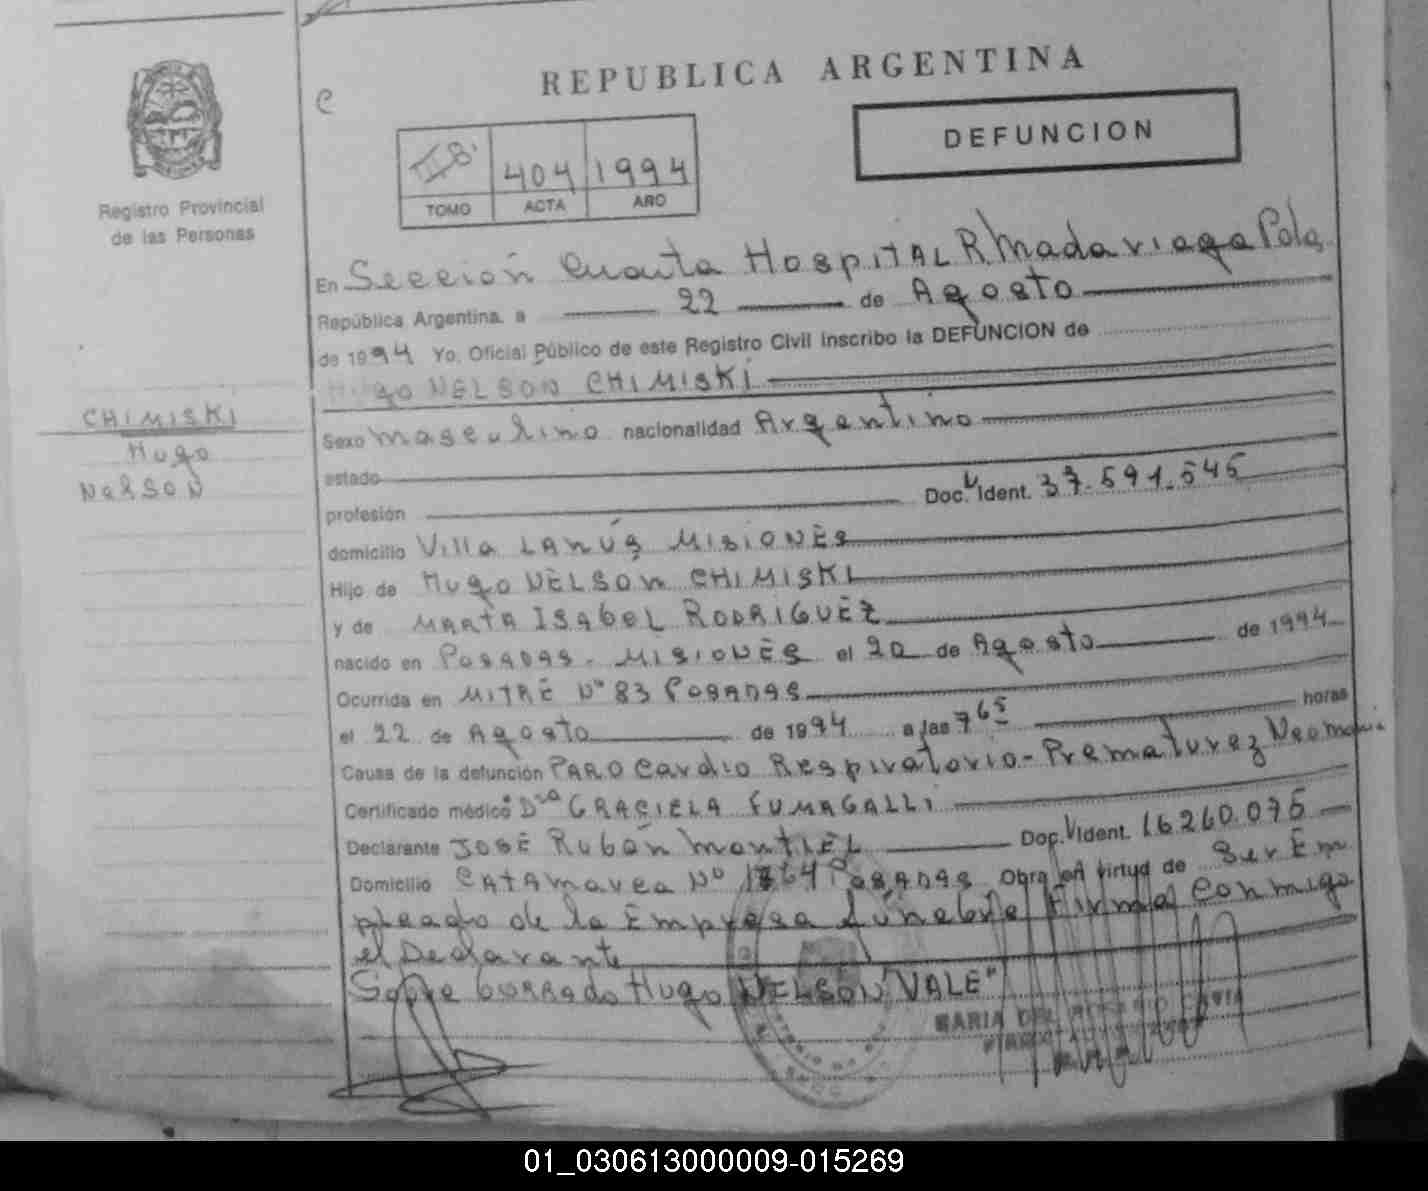 REPUBLICA ARGENTINA
DEFUNCION
404 1994
TOMO ACTA AÑO
Registro Provincial
de las Personas
En Sección Cuarta HOSPITAL R Madariaga Pdas
República Argentina, a 22 de Agosto
de 1994 Yo, Oficial Público de este Registro Civil inscribo la DEFUNCION de
Hugo NELSON CHIMISKI
CHIMISKI
Hugo
NELSON
Sexo masculino nacionalidad Argentino
estado
profesión Doc. Ident. 37.591.545
domicilio Villa LANUS MISIONES
Hijo de Hugo NELSON CHIMISKI
y de MARTA ISABEL RODRIGUEZ
nacido en POSADAS - MISIONES el 20 de Agosto de 1994
Ocurrida en MITRE Nº 83 POSADAS
el 22 de Agosto de 1994 a las horas
Causa de la defunción PARO Cardio Respiratorio - Prematurez
Certificado médico Dra GRACIELA FUMAGALLI
Declarante JOSE Rubén MONTIEL Doc. Ident. 16.260.075
Domicilio CATAMARCA Nº 1764 POSADAS Obra en virtud de Ser Em
pleado de la Empresa fúnebre Firma Conmigo
el Declarante
Sobre borrado Hugo NELSON "VALE"
MARIA DEL
01_030613000009-015269